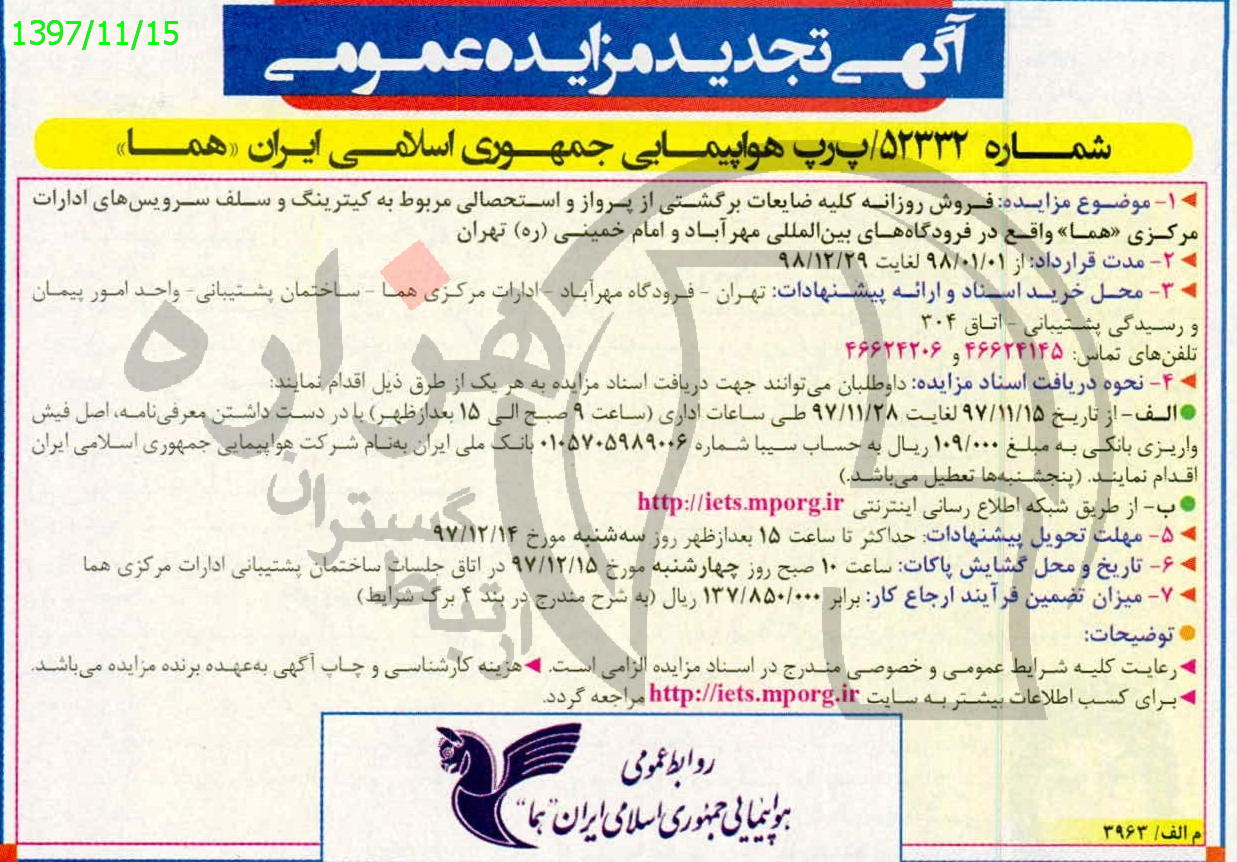 1397/11/15
آگهی تجدید مزایده عمومی
شماره ۵۲۳۳۲/پ‌رپ هواپیمایی جمهوری اسلامی ایران «هما»
۱- موضوع مزایده: فروش روزانه کلیه ضایعات برگشتی از پرواز و استحصالی مربوط به کیترینگ و سلف سرویس‌های ادارات
مرکزی «هما» واقع در فرودگاه‌های بین‌المللی مهرآباد و امام خمینی (ره) تهران
۲- مدت قرارداد: از ۹۸/۰۱/۰۱ لغایت ۹۸/۱۲/۲۹
۳- محل خرید اسناد و ارائه پیشنهادات: تهران - فرودگاه مهرآباد - ادارات مرکزی هما - ساختمان پشتیبانی- واحد امور پیمان
و رسیدگی پشتیبانی - اتاق ۳۰۴
تلفن‌های تماس: ۴۶۶۲۴۱۴۵ و ۴۶۶۲۴۲۰۶
۴- نحوه دریافت اسناد مزایده: داوطلبان می‌توانند جهت دریافت اسناد مزایده به هر یک از طرق ذیل اقدام نمایند:
الف- از تاریخ ۹۷/۱۱/۱۵ لغایت ۹۷/۱۱/۲۸ طی ساعات اداری (ساعت ۹ صبح الی ۱۵ بعدازظهر) با در دست داشتن معرفی‌نامه، اصل فیش
واریزی بانکی به مبلغ ۱۰۹/۰۰۰ ریال به حساب سیبا شماره ۰۱۰۵۷۰۵۹۸۹۰۰۶ بانک ملی ایران به‌نام شرکت هواپیمایی جمهوری اسلامی ایران
اقدام نمایند. (پنجشنبه‌ها تعطیل می‌باشد.)
ب- از طریق شبکه اطلاع رسانی اینترنتی http://iets.mporg.ir
۵- مهلت تحویل پیشنهادات: حداکثر تا ساعت ۱۵ بعدازظهر روز سه‌شنبه مورخ ۹۷/۱۲/۱۴
۶- تاریخ و محل گشایش پاکات: ساعت ۱۰ صبح روز چهارشنبه مورخ ۹۷/۱۲/۱۵ در اتاق جلسات ساختمان پشتیبانی ادارات مرکزی هما
۷- میزان تضمین فرآیند ارجاع کار: برابر ۱۳۷/۸۵۰/۰۰۰ ریال (به شرح مندرج در بند ۴ برگ شرایط)
توضیحات:
رعایت کلیه شرایط عمومی و خصوصی مندرج در اسناد مزایده الزامی است. هزینه کارشناسی و چاپ آگهی به‌عهده برنده مزایده می‌باشد.
برای کسب اطلاعات بیشتر به سایت http://iets.mporg.ir مراجعه گردد.
روابط عمومی
هواپیمایی جمهوری اسلامی ایران "هما"
م الف/ ۳۹۶۳
هزاره
گستران
ارتباط